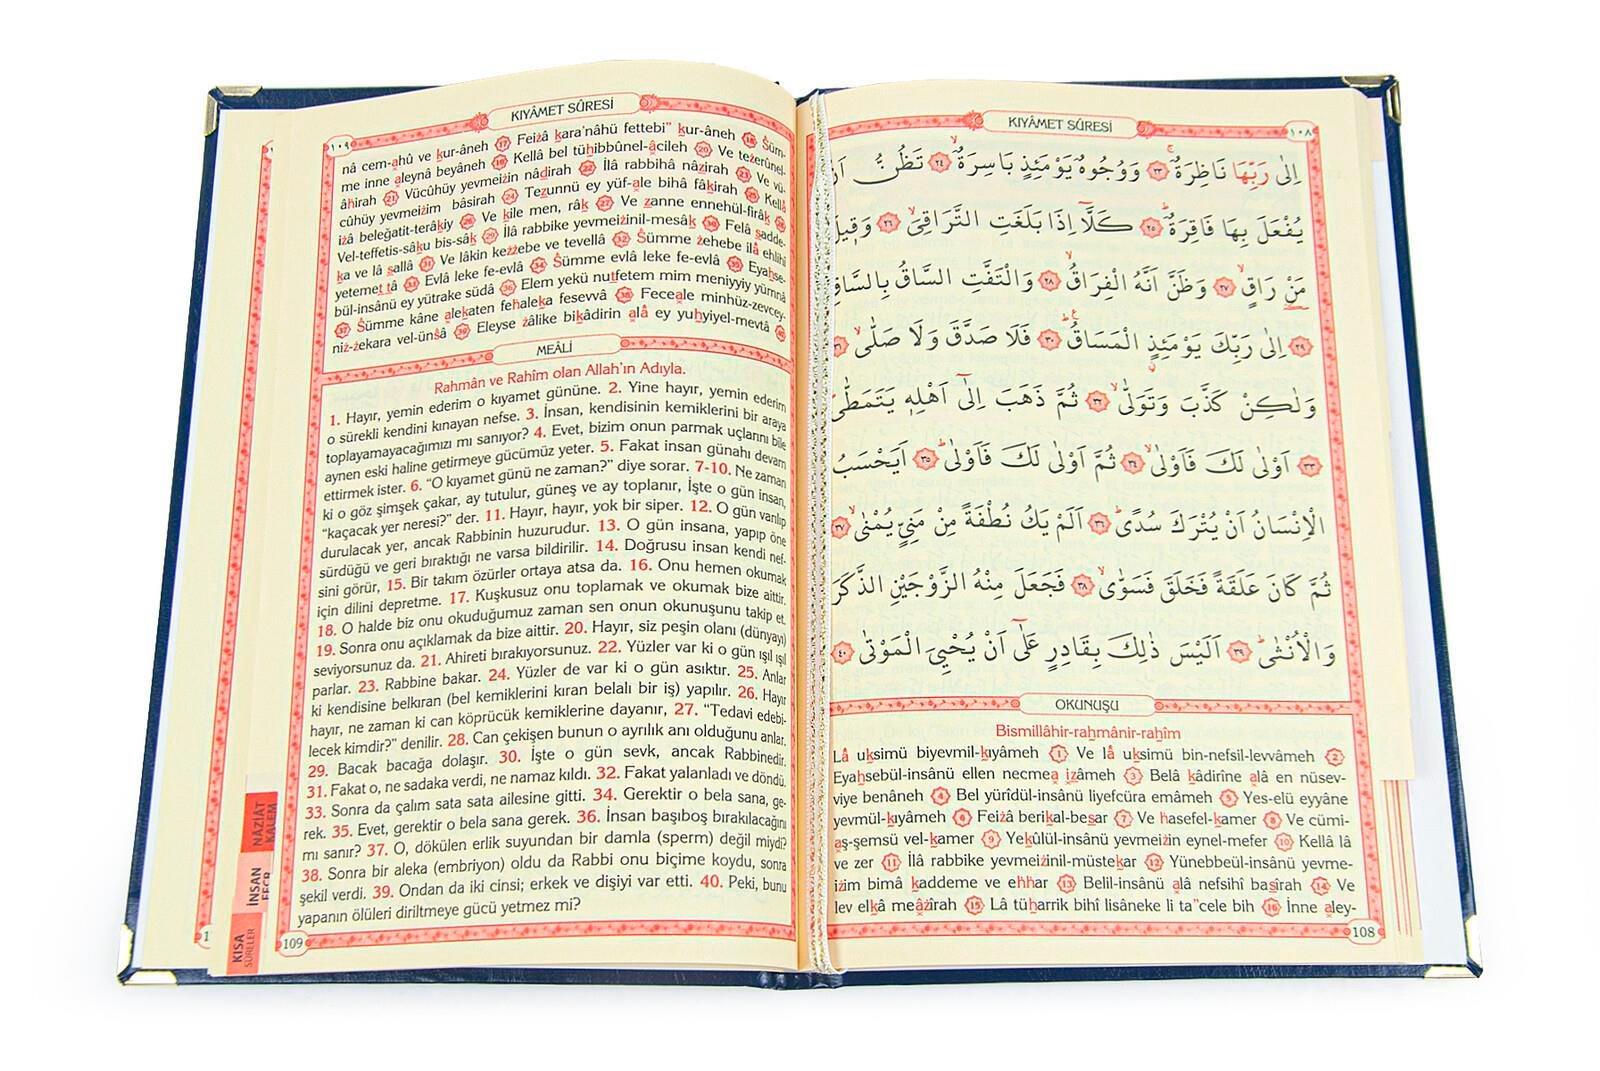 KIYÂMET SÛRESİ
١٠٨
اِلٰى رَبِّهَا نَاظِرَةٌۚ ٢٣ وَوُجُوهٌ يَوْمَئِذٍ بَاسِرَةٌۙ ٢٤ تَظُنُّ اَنْ
يُفْعَلَ بِهَا فَاقِرَةٌۜ ٢٥ كَلَّٓا اِذَا بَلَغَتِ التَّرَاقِيَۙ ٢٦ وَق۪يلَ
مَنْ رَاقٍۙ ٢٧ وَظَنَّ اَنَّهُ الْفِرَاقُۙ ٢٨ وَالْتَفَّتِ السَّاقُ بِالسَّاقِ
٢٩ اِلٰى رَبِّكَ يَوْمَئِذٍ الْمَسَاقُۜ ٣٠ فَلَا صَدَّقَ وَلَا صَلّٰىۙ ٣١
وَلٰكِنْ كَذَّبَ وَتَوَلّٰىۙ ٣٢ ثُمَّ ذَهَبَ اِلٰٓى اَهْلِه۪ يَتَمَطّٰى
٣٣ اَوْلٰى لَكَ فَاَوْلٰىۙ ٣٤ ثُمَّ اَوْلٰى لَكَ فَاَوْلٰىۜ ٣٥ اَيَحْسَبُ
الْاِنْسَانُ اَنْ يُتْرَكَ سُدًىۜ ٣٦ اَلَمْ يَكُ نُطْفَةً مِنْ مَنِيٍّ يُمْنٰىۙ ٣٧
ثُمَّ كَانَ عَلَقَةً فَخَلَقَ فَسَوّٰىۙ ٣٨ فَجَعَلَ مِنْهُ الزَّوْجَيْنِ الذَّكَرَ
وَالْاُنْثٰىۜ ٣٩ اَلَيْسَ ذٰلِكَ بِقَادِرٍ عَلٰٓى اَنْ يُحْيِيَ الْمَوْتٰى ٤٠
OKUNUŞU
Bismillâhir-rahmânir-rahîm
Lâ uksimü biyevmil-kıyâmeh 1 Ve lâ uksimü bin-nefsil-levvâmeh 2
Eyahsebül-insânü ellen necmea izâmeh 3 Belâ kâdirîne alâ en nüsev-
viye benâneh 4 Bel yürîdül-insânü liyefcüra emâmeh 5 Yes-elü eyyâne
yevmül-kıyâmeh 6 Feizâ berikal-besar 7 Ve hasefel-kamer 8 Ve cümi-
aş-şemsü vel-kamer 9 Yekûlül-insânü yevmeizin eynel-mefer 10 Kellâ lâ
ve zer 11 İlâ rabbike yevmeizinil-müstekar 12 Yünebbeül-insânü yevme-
izim bimâ kaddeme ve ehhar 13 Belil-insânü alâ nefsihî basîrah 14 Ve
lev elkâ meâzîrah 15 Lâ tüharrik bihî lisâneke li ta"cele bih 16 İnne aley-
108
KIYÂMET SÛRESİ
١٠٩
nâ cem-ahû ve kur-âneh 17 Feizâ kara'nâhü fettebi" kur-âneh 18 Süm-
me inne aleynâ beyâneh 19 Kellâ bel tühibbûnel-âcileh 20 Ve tezerûnel-
âhirah 21 Vücûhüy yevmeizin nâdırah 22 İlâ rabbihâ nâzirah 23 Ve vü-
cûhüy yevmeizim bâsirah 24 Tezunnü ey yüf-ale bihâ fâkirah 25 Kellâ
izâ beleğatit-terâkıy 26 Ve kıle men, râk 27 Ve zanne ennehül-firâk 28
Vel-teffetis-sâku bis-sâk 29 İlâ rabbike yevmeizinil-mesâk 30 Felâ sadde-
ka ve lâ sallâ 31 Ve lâkin kezzebe ve tevellâ 32 Sümme zehebe ilâ ehlihî
yetemettâ 33 Evlâ leke fe-evlâ 34 Sümme evlâ leke fe-evlâ 35 Eyahse-
bül-insânü ey yütrake südâ 36 Elem yekü nutfetem mim meniyyiy yümnâ
37 Sümme kâne alekaten fehaleka fesevvâ 38 Feceale minhüz-zevcey-
niz-zekara vel-ünsâ 39 Eleyse zâlike bikâdirin alâ ey yuhyiyel-mevtâ 40
MEÂLİ
Rahmân ve Rahîm olan Allah'ın Adıyla.
1. Hayır, yemin ederim o kıyamet gününe. 2. Yine hayır, yemin ederim
o sürekli kendini kınayan nefse. 3. İnsan, kendisinin kemiklerini bir araya
toplayamayacağımızı mı sanıyor? 4. Evet, bizim onun parmak uçlarını bile
aynen eski haline getirmeye gücümüz yeter. 5. Fakat insan günahı devam
ettirmek ister. 6. “O kıyamet günü ne zaman?” diye sorar. 7-10. Ne zaman
ki o göz şimşek çakar, ay tutulur, güneş ve ay toplanır, İşte o gün insan,
“kaçacak yer neresi?” der. 11. Hayır, hayır, yok bir siper. 12. O gün varılıp
durulacak yer, ancak Rabbinin huzurudur. 13. O gün insana, yapıp öne
sürdüğü ve geri bıraktığı ne varsa bildirilir. 14. Doğrusu insan kendi nef-
sini görür, 15. Bir takım özürler ortaya atsa da. 16. Onu hemen okumak
için dilini depretme. 17. Kuşkusuz onu toplamak ve okumak bize aittir.
18. O halde biz onu okuduğumuz zaman sen onun okunuşunu takip et.
19. Sonra onu açıklamak da bize aittir. 20. Hayır, siz peşin olanı (dünyayı)
seviyorsunuz da. 21. Ahireti bırakıyorsunuz. 22. Yüzler var ki o gün ışıl ışıl
parlar. 23. Rabbine bakar. 24. Yüzler de var ki o gün asıktır. 25. Anlar
ki kendisine belkıran (bel kemiklerini kıran belalı bir iş) yapılır. 26. Hayır
hayır, ne zaman ki can köprücük kemiklerine dayanır, 27. “Tedavi edebi-
lecek kimdir?” denilir. 28. Can çekişen bunun o ayrılık anı olduğunu anlar.
29. Bacak bacağa dolaşır. 30. İşte o gün sevk, ancak Rabbinedir.
31. Fakat o, ne sadaka verdi, ne namaz kıldı. 32. Fakat yalanladı ve döndü.
33. Sonra da çalım sata sata ailesine gitti. 34. Gerektir o bela sana, ge-
rek. 35. Evet, gerektir o bela sana gerek. 36. İnsan başıboş bırakılacağını
mı sanır? 37. O, dökülen erlik suyundan bir damla (sperm) değil miydi?
38. Sonra bir aleka (embriyon) oldu da Rabbi onu biçime koydu, sonra
şekil verdi. 39. Ondan da iki cinsi; erkek ve dişiyi var etti. 40. Peki, bunu
yapanın ölüleri diriltmeye gücü yetmez mi?
109
NÂZİÂT
KALEM
İNSAN
FECR
KISA
SÛRELER